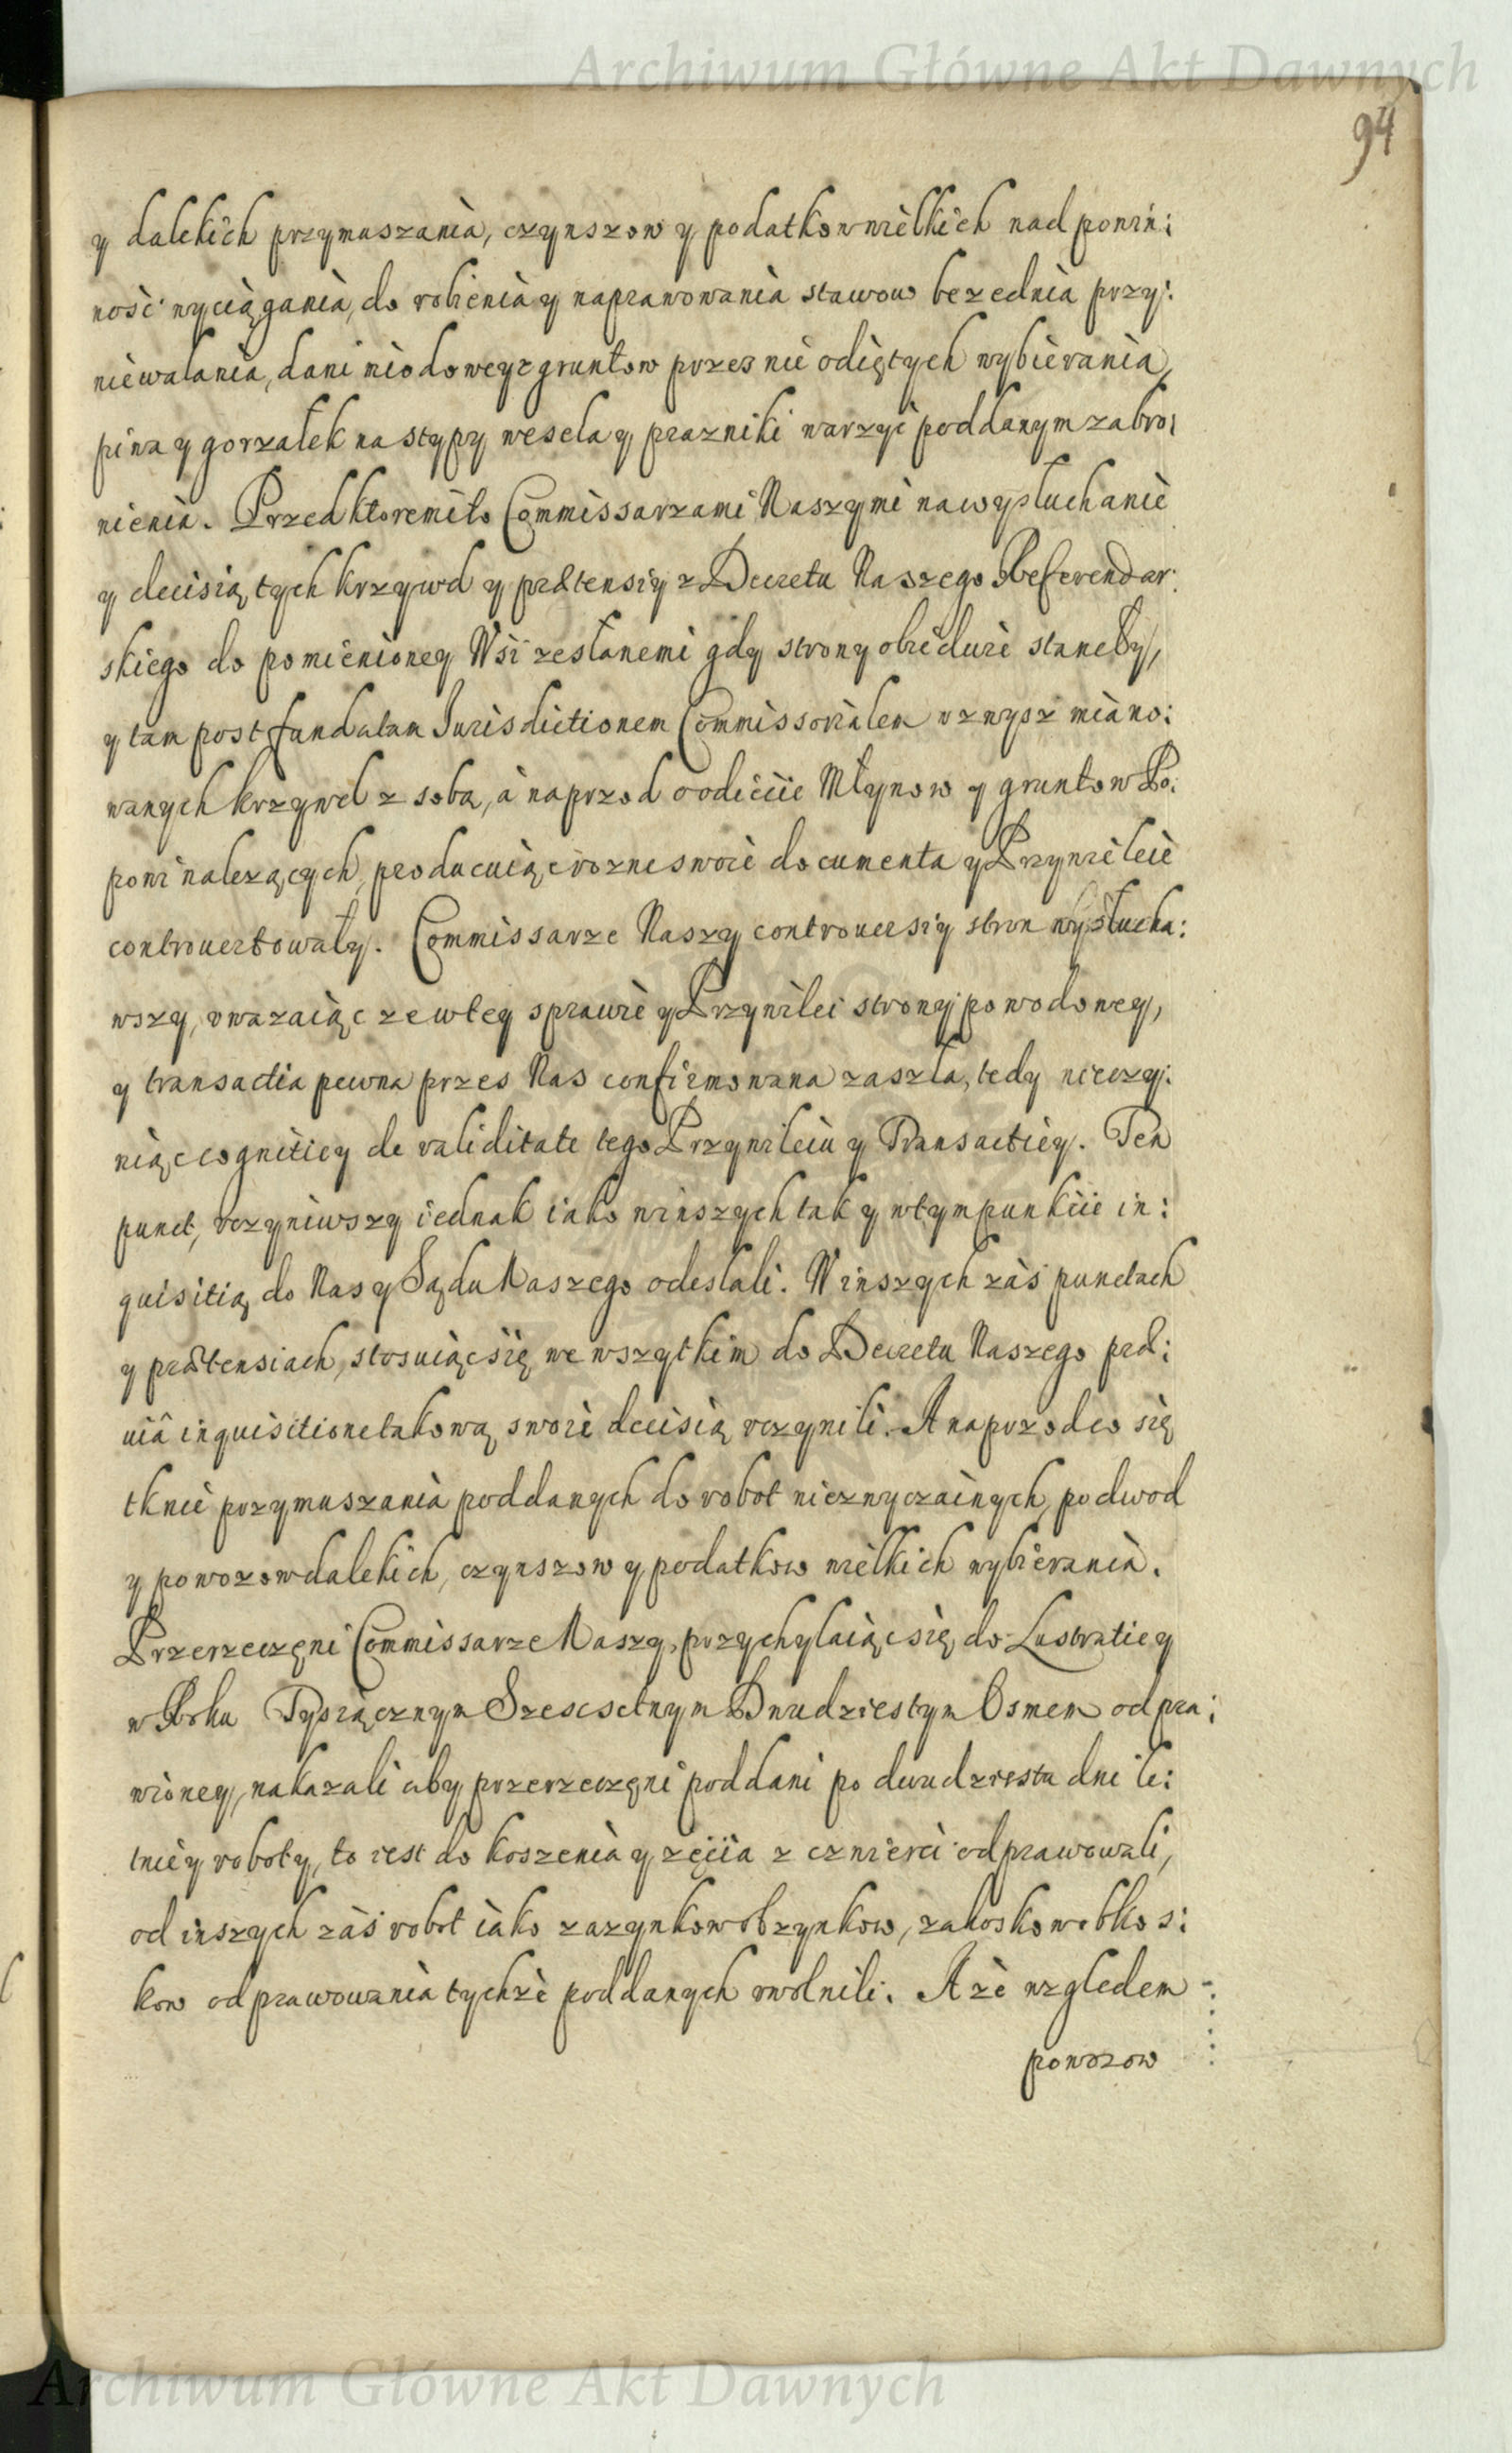 Archiwum Główne Akt Dawnych
94
y dalekich przymuszania, czynszow y podatkow wielkich nad powin:
ność wyciągania, do robienia y naprawowania stawow bezednia przy:
niewalania, dani miodowey z gruntow przez nie odiętych wybierania,
piwa y gorzałek na stypy wesela y prazniki warzyć poddanym zabro:
nienia. Przed ktoremito Commissarzami Naszymi na wysłuchanie
y decisią tych krzywd y prætensiy z Decretu Naszego Referendar:
skiego do pomienioney Wsi zesłanemi gdy strony obiedwie staneły,
y tam post fundatam Jurisdictionem Commissorialem wzwysz miano:
wanych krzywd z soba, à naprzod o odięcie Młynow y gruntow Po:
powi nalezących, producuiąc rozne swoie documenta y Przywileie
controvertowały. Commissarze Naszy controversiy stron wysłucha:
wszy, vwazaiąc ze w tey sprawie y Przywilei strony powodowey,
y transactia pewna przes Nas confirmowana zaszła, tedy nieczy:
niąc cognitiey de validitate tego Przywileiu y Transactiey. Ten
punct, vczyniwszy iednak iako w inszych tak y w tym punkcie in:
quisitią do Nas y Sądu Naszego odesłali. W inszych zaś punctach
y prætensiach, stosuiąc się we wszytkim do Decretu Naszego præ:
viâ inquisitione takową swoie decisią vczynili. A naprzod co się
tknie przymuszania poddanych do robot niezwyczainych, podwod
y powozow dalekich, czynszow y podatkow wielkich wybierania.
Przerzeczęni Commissarze Naszy, przychylaiąc się do Lustratiey
w Roku Tysiącznym Szescsetnym Dwudziestym Osmem odpra:
wioney, nakazali aby przerzeczęni poddani po dwudziestu dni le:
tniey roboty, to iest do koszenia y zęcia z czwierci odprawowali,
od inszych zaś robot iako zazynkow obzynkow, zakoskow obkos:
kow odprawowania tychże poddanych vwolnili. A że względem
powozow
Archiwum Główne Akt Dawnych